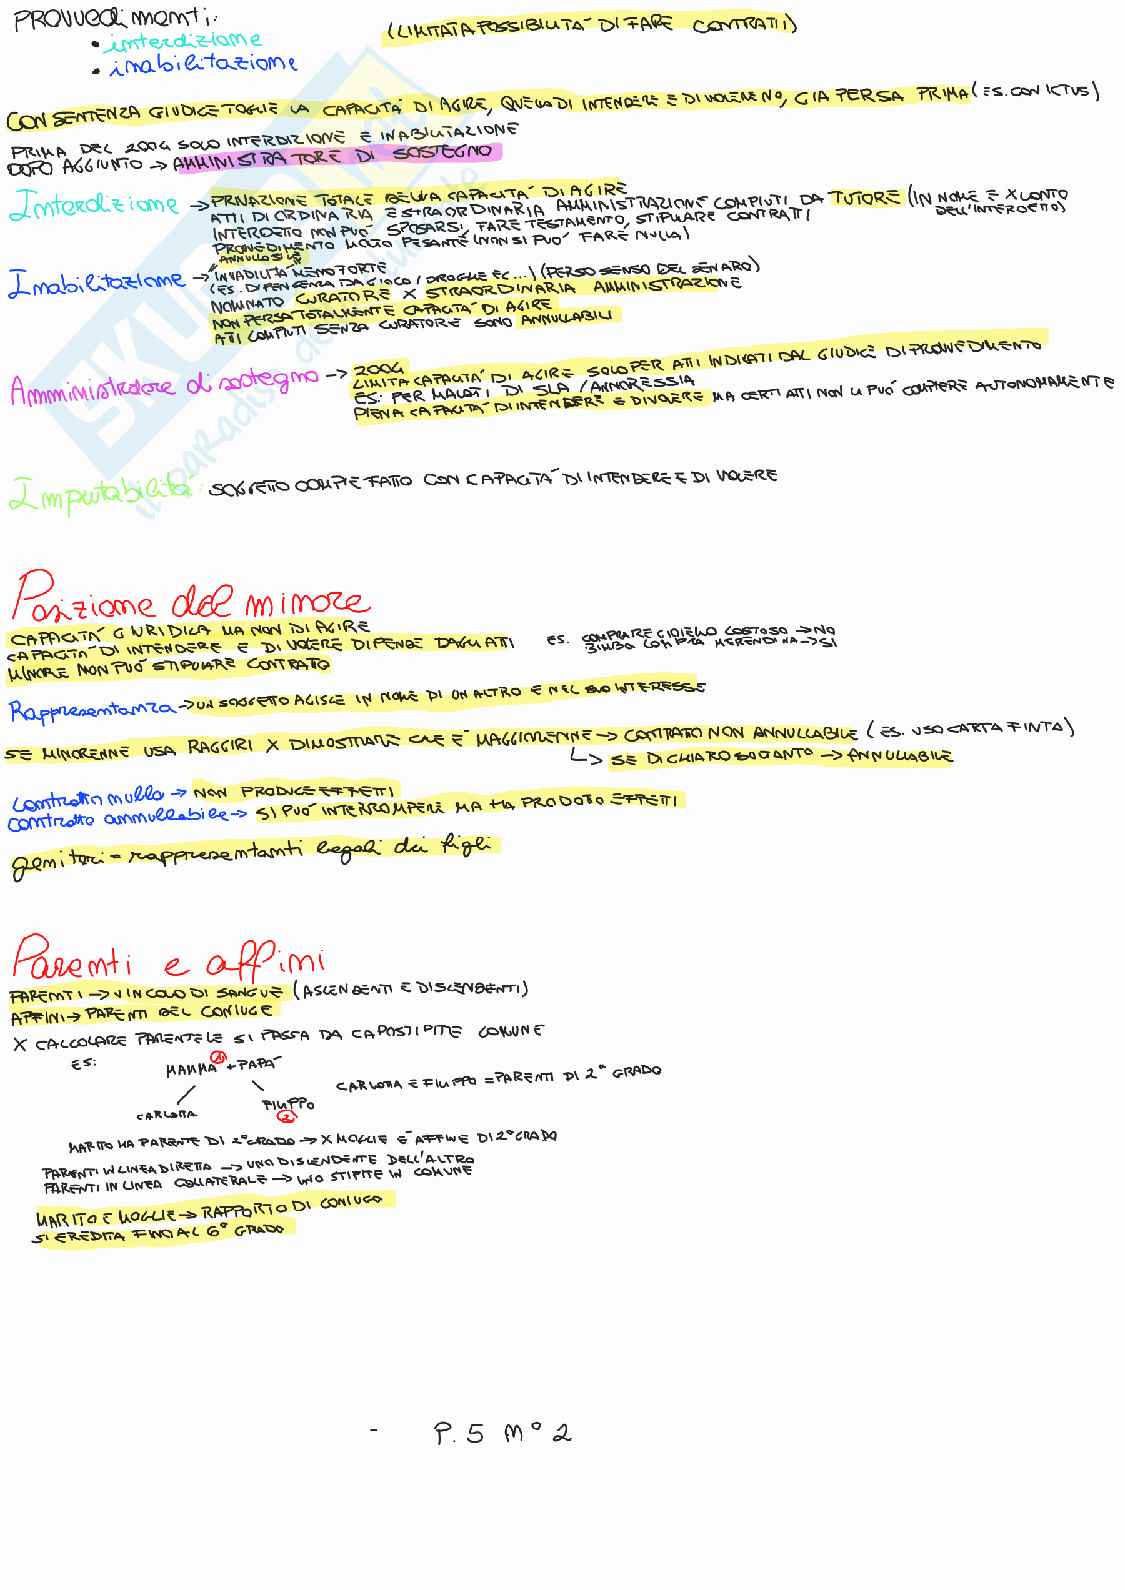 PROVVEDIMENTI:
(LIMITATA POSSIBILITA' DI FARE CONTRATTI)
• interdizione
• inabilitazione
CON SENTENZA GIUDICE TOGLIE LA CAPACITA' DI AGIRE, QUELLA DI INTENDERE E DI VOLERE NO, GIA PERSA PRIMA (ES. CON ICTUS)
PRIMA DEL 2004 SOLO INTERDIZIONE E INABILITAZIONE
DOPO AGGIUNTO → AMMINISTRATORE DI SOSTEGNO
Interdizione → PRIVAZIONE TOTALE DELLA CAPACITA' DI AGIRE
ATTI DI ORDINARIA E STRAORDINARIA AMMINISTRAZIONE COMPIUTI DA TUTORE (IN NOME E X CONTO DELL'INTERDETTO)
INTERDETTO NON PUO' SPOSARSI, FARE TESTAMENTO, STIPULARE CONTRATTI
PROVVEDIMENTO MOLTO PESANTE (NON SI PUO' FARE NULLA)
Inabilitazione → INVALIDITA' MENO FORTE
(ES. DIPENDENZA DA GIOCO/DROGHE EC...) (PERSO SENSO DEL DENARO)
NOMINATO CURATORE X STRAORDINARIA AMMINISTRAZIONE
NON PERSA TOTALMENTE CAPACITA' DI AGIRE
ATTI COMPIUTI SENZA CURATORE SONO ANNULLABILI
Amministratore di sostegno → 2004
LIMITA CAPACITA' DI AGIRE SOLO PER ATTI INDICATI DAL GIUDICE DI PROVVEDIMENTO
ES: PER MALATI DI SLA/ANNORESSIA
PIENA CAPACITA' DI INTENDERE E DI VOLERE MA CERTI ATTI NON LI PUO' COMPIERE AUTONOMAMENTE
Imputabilità: SOGGETTO COMPIE FATTO CON CAPACITA' DI INTENDERE E DI VOLERE
Posizione del minore
CAPACITA' GIURIDICA MA NON DI AGIRE
CAPACITA' DI INTENDERE E DI VOLERE DIPENDE DAGLI ATTI
ES. COMPRARE GIOIELLO COSTOSO → NO
BIMBO COMPRA MERENDINA → SI
MINORE NON PUO' STIPULARE CONTRATTO
Rappresentanza → UN SOGGETTO AGISCE IN NOME DI UN ALTRO E NEL SUO INTERESSE
SE MINORENNE USA RAGGIRI X DIMOSTRARE CHE E' MAGGIORENNE → CONTRATTO NON ANNULLABILE (ES. USO CARTA FINTA)
↳ SE DICHIARO SOLTANTO → ANNULLABILE
contratto nullo → NON PRODUCE EFFETTI
contratto annullabile → SI PUO' INTERROMPERE MA HA PRODOTTO EFFETTI
genitori = rappresentanti legali dei figli
Parenti e affini
PARENTI → VINCOLO DI SANGUE (ASCENDENTI E DISCENDENTI)
AFFINI → PARENTI DEL CONIUGE
X CALCOLARE PARENTELE SI PASSA DA CAPOSTIPITE COMUNE
ES:
MAMMA + PAPA'
1
CARLOTTA E FILIPPO = PARENTI DI 2° GRADO
CARLOTTA
FILIPPO
2
MARITO HA PARENTE DI 2° GRADO → X MOGLIE E' AFFINE DI 2° GRADO
PARENTI IN LINEA DIRETTA → UNO DISCENDENTE DELL'ALTRO
PARENTI IN LINEA COLLATERALE → UNO STIPITE IN COMUNE
MARITO E MOGLIE → RAPPORTO DI CONIUGO
SI EREDITA FINO AL 6° GRADO
- P. 5 N° 2